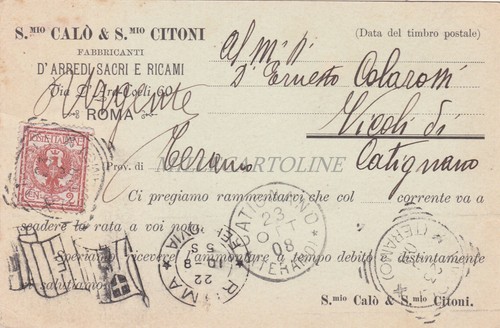 S.mio CALÒ & S.mio CITONI
FABBRICANTI
D'ARREDI SACRI E RICAMI
Via D'Ara-Coeli 60
ROMA
(Data del timbro postale)
Al M. R.
D. Ernesto
Vicoli di
Catignano
Urgente
Prov. di Teramo
CARTOLINE
Ci pregiamo rammentarvi che col corrente va a
scadere la rata a voi nota.
Speriamo ricevere l'ammontare a tempo debito e distintamente
vi salutiamo.
S.mio Calò & S.mio Citoni.
CATIGNANO
23
OTT
08
(TERAMO)
ROMA FERROVIA
22
10 8
5 S
(TERAMO)